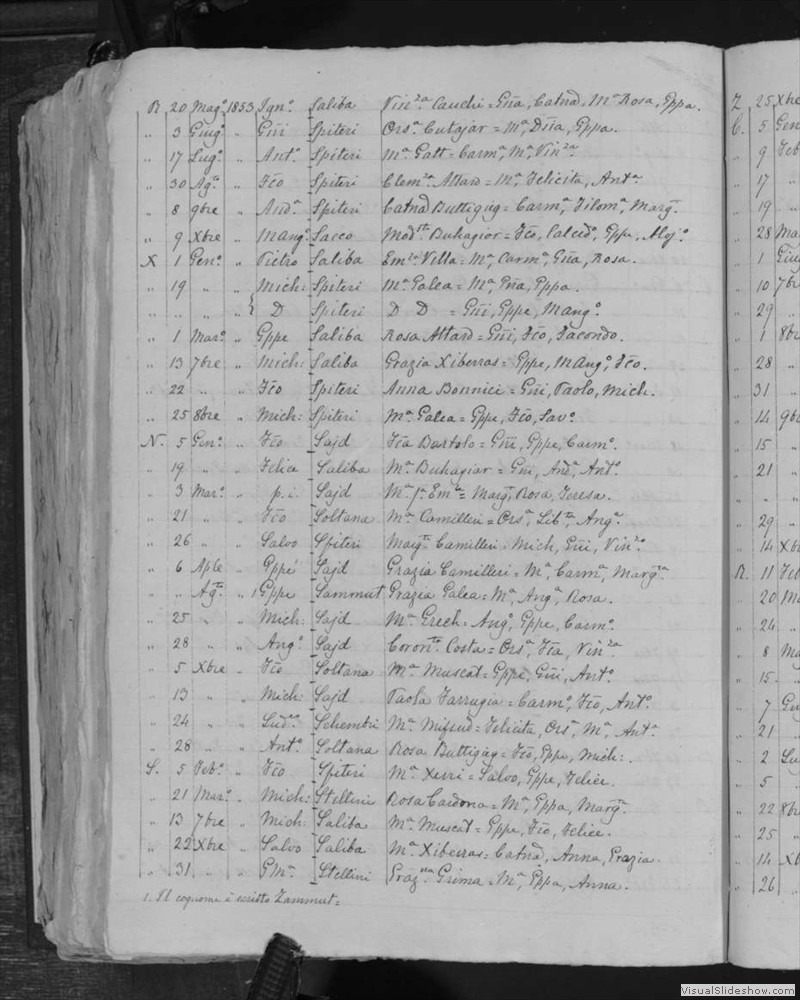 R 20 Mago. 1853 Igno. Saliba Vin2a. Cauchi = Gña, Catnā, Ma. Rosa, Gppa.
" 3 Giugo " Gññ Spiteri Orsa. Cutajar = Ma, Dña, Gppa.
" 17 Lugo. " Anto. Spiteri Ma. Gatt = Carma, Ma, Vin2a.
" 30 Agto " Fco Spiteri Clem2a. Attard = Ma, Felicita, Anta.
" 8 9bre " Anda. Spiteri Catnā Buttigieg = Carma, Filoma, Marg.
" 9 Xbre " Mango. Sacco Modsta. Buhagiar = Fco, Calcedo, Gppe, Aljo.
X 1 Geno. " Pietro Saliba Em2a. Vella = Ma, Carma, Gña, Rosa.
" 19 " " Mich: Spiteri Ma. Galea = Ma, Gña, Gppa.
" " " " D Spiteri D D = Gññ, Gppe, Mango.
" 1 Maro. " Gppe Saliba Rosa Attard = Gññ, Fco, Facondo.
" 13 7bre " Mich: Saliba Grazia Xiberras = Gppe, Mango, Fco.
" 22 " " Fco Spiteri Anna Bonnici = Gññ, Paolo, Mich.
" 25 8bre " Mich: Spiteri Ma. Galea = Gppe, Fco, Savo.
N. 5 Geno. " Fco Sajd Fca Bartolo = Gññ, Gppe, Carmo.
" 19 " " Felice Saliba Ma. Buhagiar = Gññ, Anda, Anto.
" 3 Maro. " p.i. Sajd Ma. pa. Emla = Marg, Rosa, Teresa.
" 21 " " Fco Soltana Ma. Camilleri = Orsa, Libta, Anga.
" 26 " " Salvo Spiteri Margta. Camilleri = Mich, Gññ, Vin2o.
" 6 Aple " Gppe Sajd Grazia Camilleri = Ma, Carma, Margta.
" " Agto. " 1 Gppe Sammut Grazia Galea = Ma, Anga, Rosa.
" 25 " " Mich: Sajd Ma. Grech = Ango, Gppe, Carmo.
" 28 " " Ango. Sajd Coronta. Costa = Orsa, Fca, Vin2a
" 5 Xbre " Fco Soltana Ma. Muscat = Gppe, Gññ, Anto.
" 13 " " Mich: Sajd Paola Farrugia = Carmo, Fco, Anto.
" 24 " " Ludco. Schembri Ma. Mifsud = Felicita, Orsa, Ma, Anta
" 28 " " Anto. Soltana Rosa Buttigieg = Fco, Gppe, Mich:.
S. 5 Febo. " Fco Spiteri Ma. Xerri = Salvo, Gppe, Felice.
" 21 Maro. " Mich: Stellini Rosa Cardona = Ma, Gppa, Margta.
" 13 7bre " Mich: Saliba Ma. Muscat = Gppe, Fco, Felice.
" 22 Xbre " Salvo Saliba Ma. Xiberras = Catnā, Anna, Grazia.
" 31 " " GMa. Stellini Grazna. Grima = Ma, Gppa, Anna.
1. Il cognome è scritto Zammut =
Z 25 Xbre
C. 5 Gen
" 9 Feb
" 17 "
" 19 "
" 28 Ma
" 1 Giug
" 10 7bre
" 29 "
" 1 8bre
" 28 "
" 31 "
" 14 9bre
" 15 "
" 21 "
" " "
" 29 "
" 14 Xbre
R. 11 Feb
" 20 Ma
" 24 "
" 8 Ma
" 15 "
" 7 Giu
" 21 "
" 2 Lu
" 5 "
" 22 8bre
" 25 "
" 14 Xb
" 26 "
VisualSlideshow.com